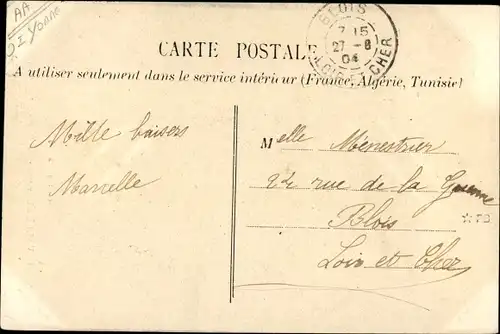 AA
Yonne
BLOIS
7 15
27 - 8
04
LOIR-ET-CHER
CARTE POSTALE
A utiliser seulement dans le service intérieur (France, Algérie, Tunisie)
Mille baisers
Marcelle
Melle Ménestrier
24 rue de la
Blois
Loir et Cher